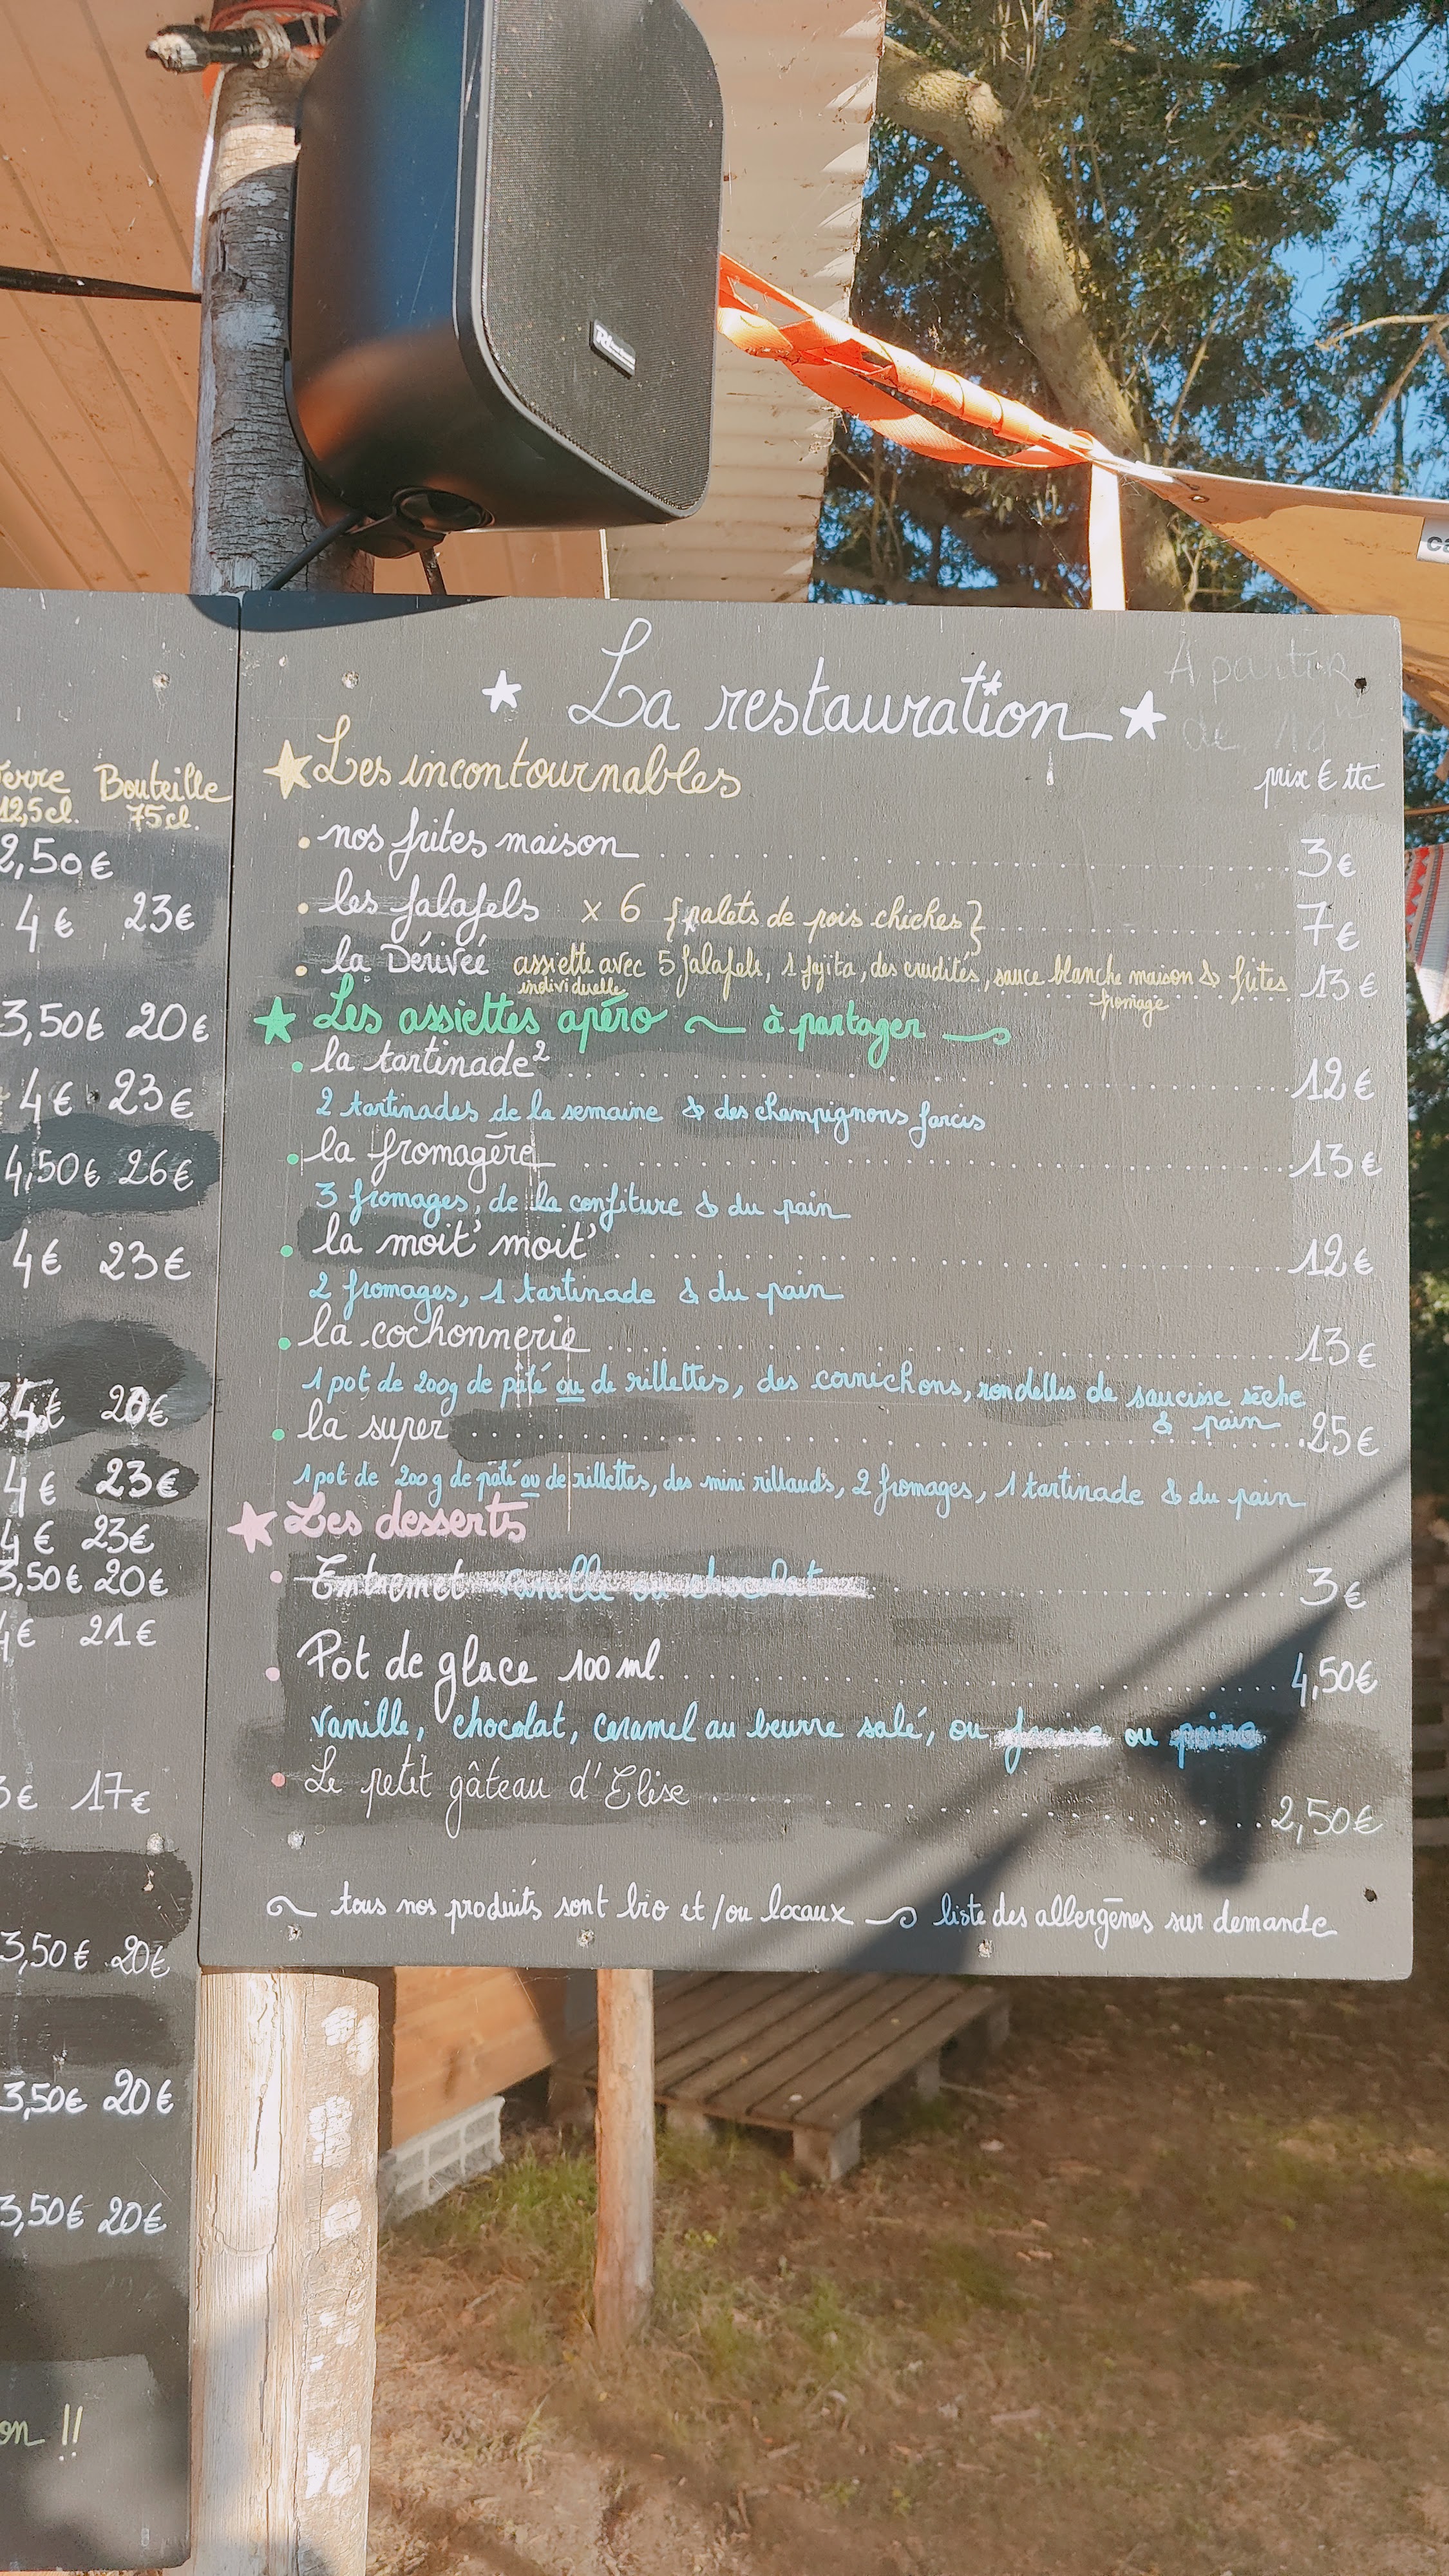 À partir
de 19h
La restauration
Les incontournables
prix € ttc
nos frites maison 3€
les falafels x 6 {palets de pois chiches} 7€
la Dérivée assiette avec 5 falafels, 1 fajita, des crudités, sauce blanche maison & frites 13€
individuelle fromage
Les assiettes apéro à partager
la tartinade² 12€
2 tartinades de la semaine & des champignons farcis
la fromagère 13€
3 fromages, de la confiture & du pain
la moit' moit' 12€
2 fromages, 1 tartinade & du pain
la cochonnerie 13€
1 pot de 200g de pâté ou de rillettes, des cornichons, rondelles de saucisse sèche
& pain
la super 25€
1 pot de 200g de pâté ou de rillettes, des mini rillauds, 2 fromages, 1 tartinade & du pain
Les desserts
Entremet vanille ou chocolat 3€
Pot de glace 100 ml 4,50€
vanille, chocolat, caramel au beurre salé, ou fraise ou poire
Le petit gâteau d'Elise 2,50€
tous nos produits sont bio et/ou locaux liste des allergènes sur demande
Verre Bouteille
12,5cl. 75cl.
2,50€
4€ 23€
3,50€ 20€
4€ 23€
4,50€ 26€
4€ 23€
20€
4€ 23€
4€ 23€
3,50€ 20€
4€ 21€
3€ 17€
3,50€ 20€
3,50€ 20€
3,50€ 20€
on !!